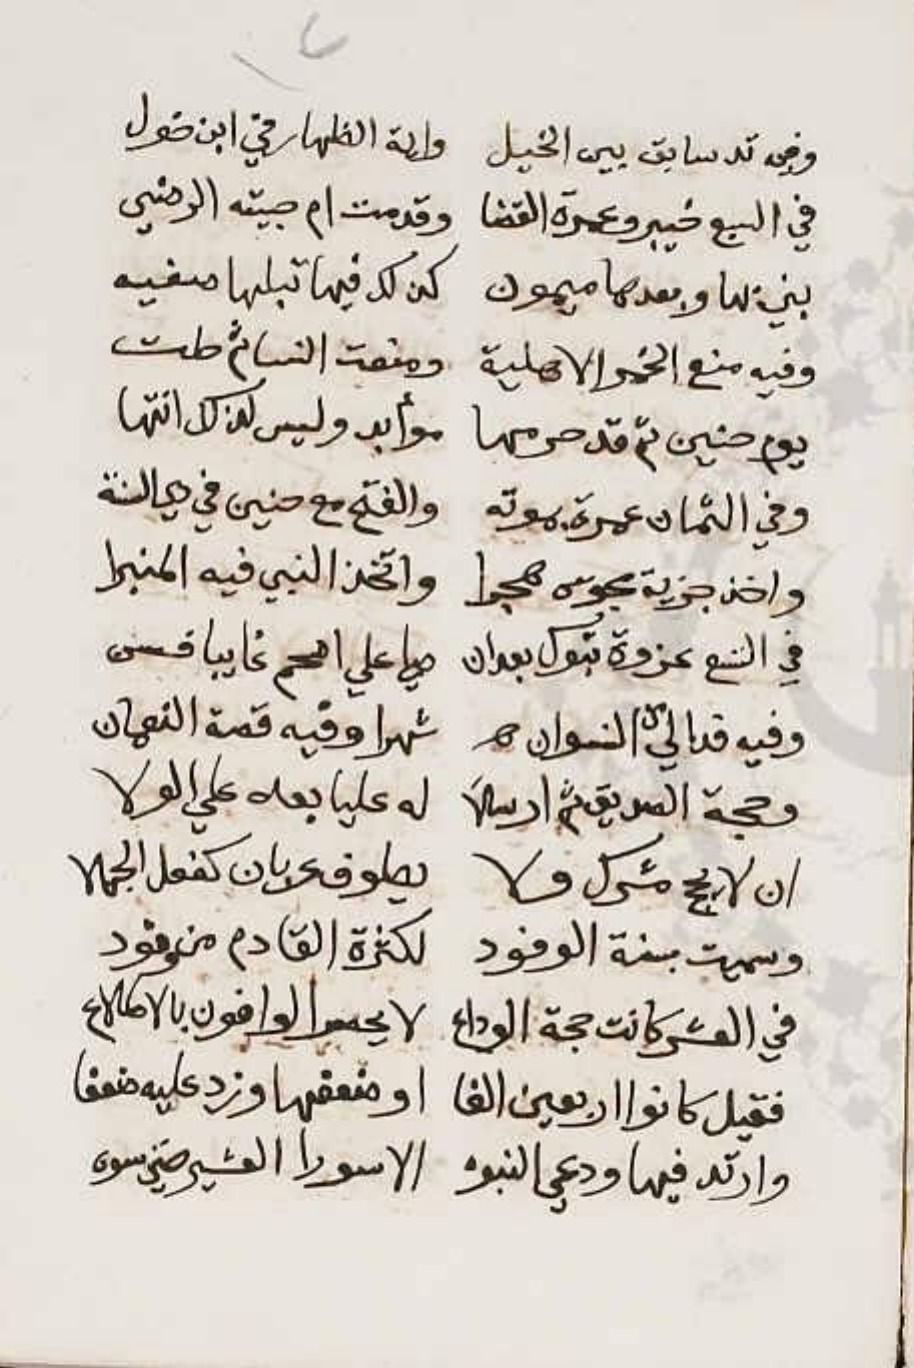 وفيه قد سابق بين الخيل واية الظهار في ابن خول
في السبع خيبر وعمرة القضا وقدمت ام حبيبه الرضي
بني بها وبعدها ميمون كذلك فيها قبلها صفيه
وفيه منع الخمر الاهلية ومنعت النسا ثم حلت
يوم حنين ثم قد حرمها موأبد وليس لذلك انتها
وفي الثمان عمرة موته والفتح مع حنين في ذي السنة
واخذ جزية مجوس هجرا واتخذ النبي فيه المنبرا
في التسع غزوة تبوك بعد ان صلى علي اصحم غايبا فسن
وفيه قد الي النسوان شهرا وفيه قصة النعمان
وحجة الصديق ثم ارسلا له عليا بعده علي الولا
ان لا يحج مشرك ولا يطوف عريان كفعل الجهلا
وسميت بسنة الوفود لكثرة القادم من وفود
في العشر كانت حجة الوداع لا يحصر الوافون بالاطلاع
فقيل كانوا اربعين الفا او ضعفها وزد عليه ضعفا
وارتد فيها ودعي النبوه الاسود العشير حتي سوه